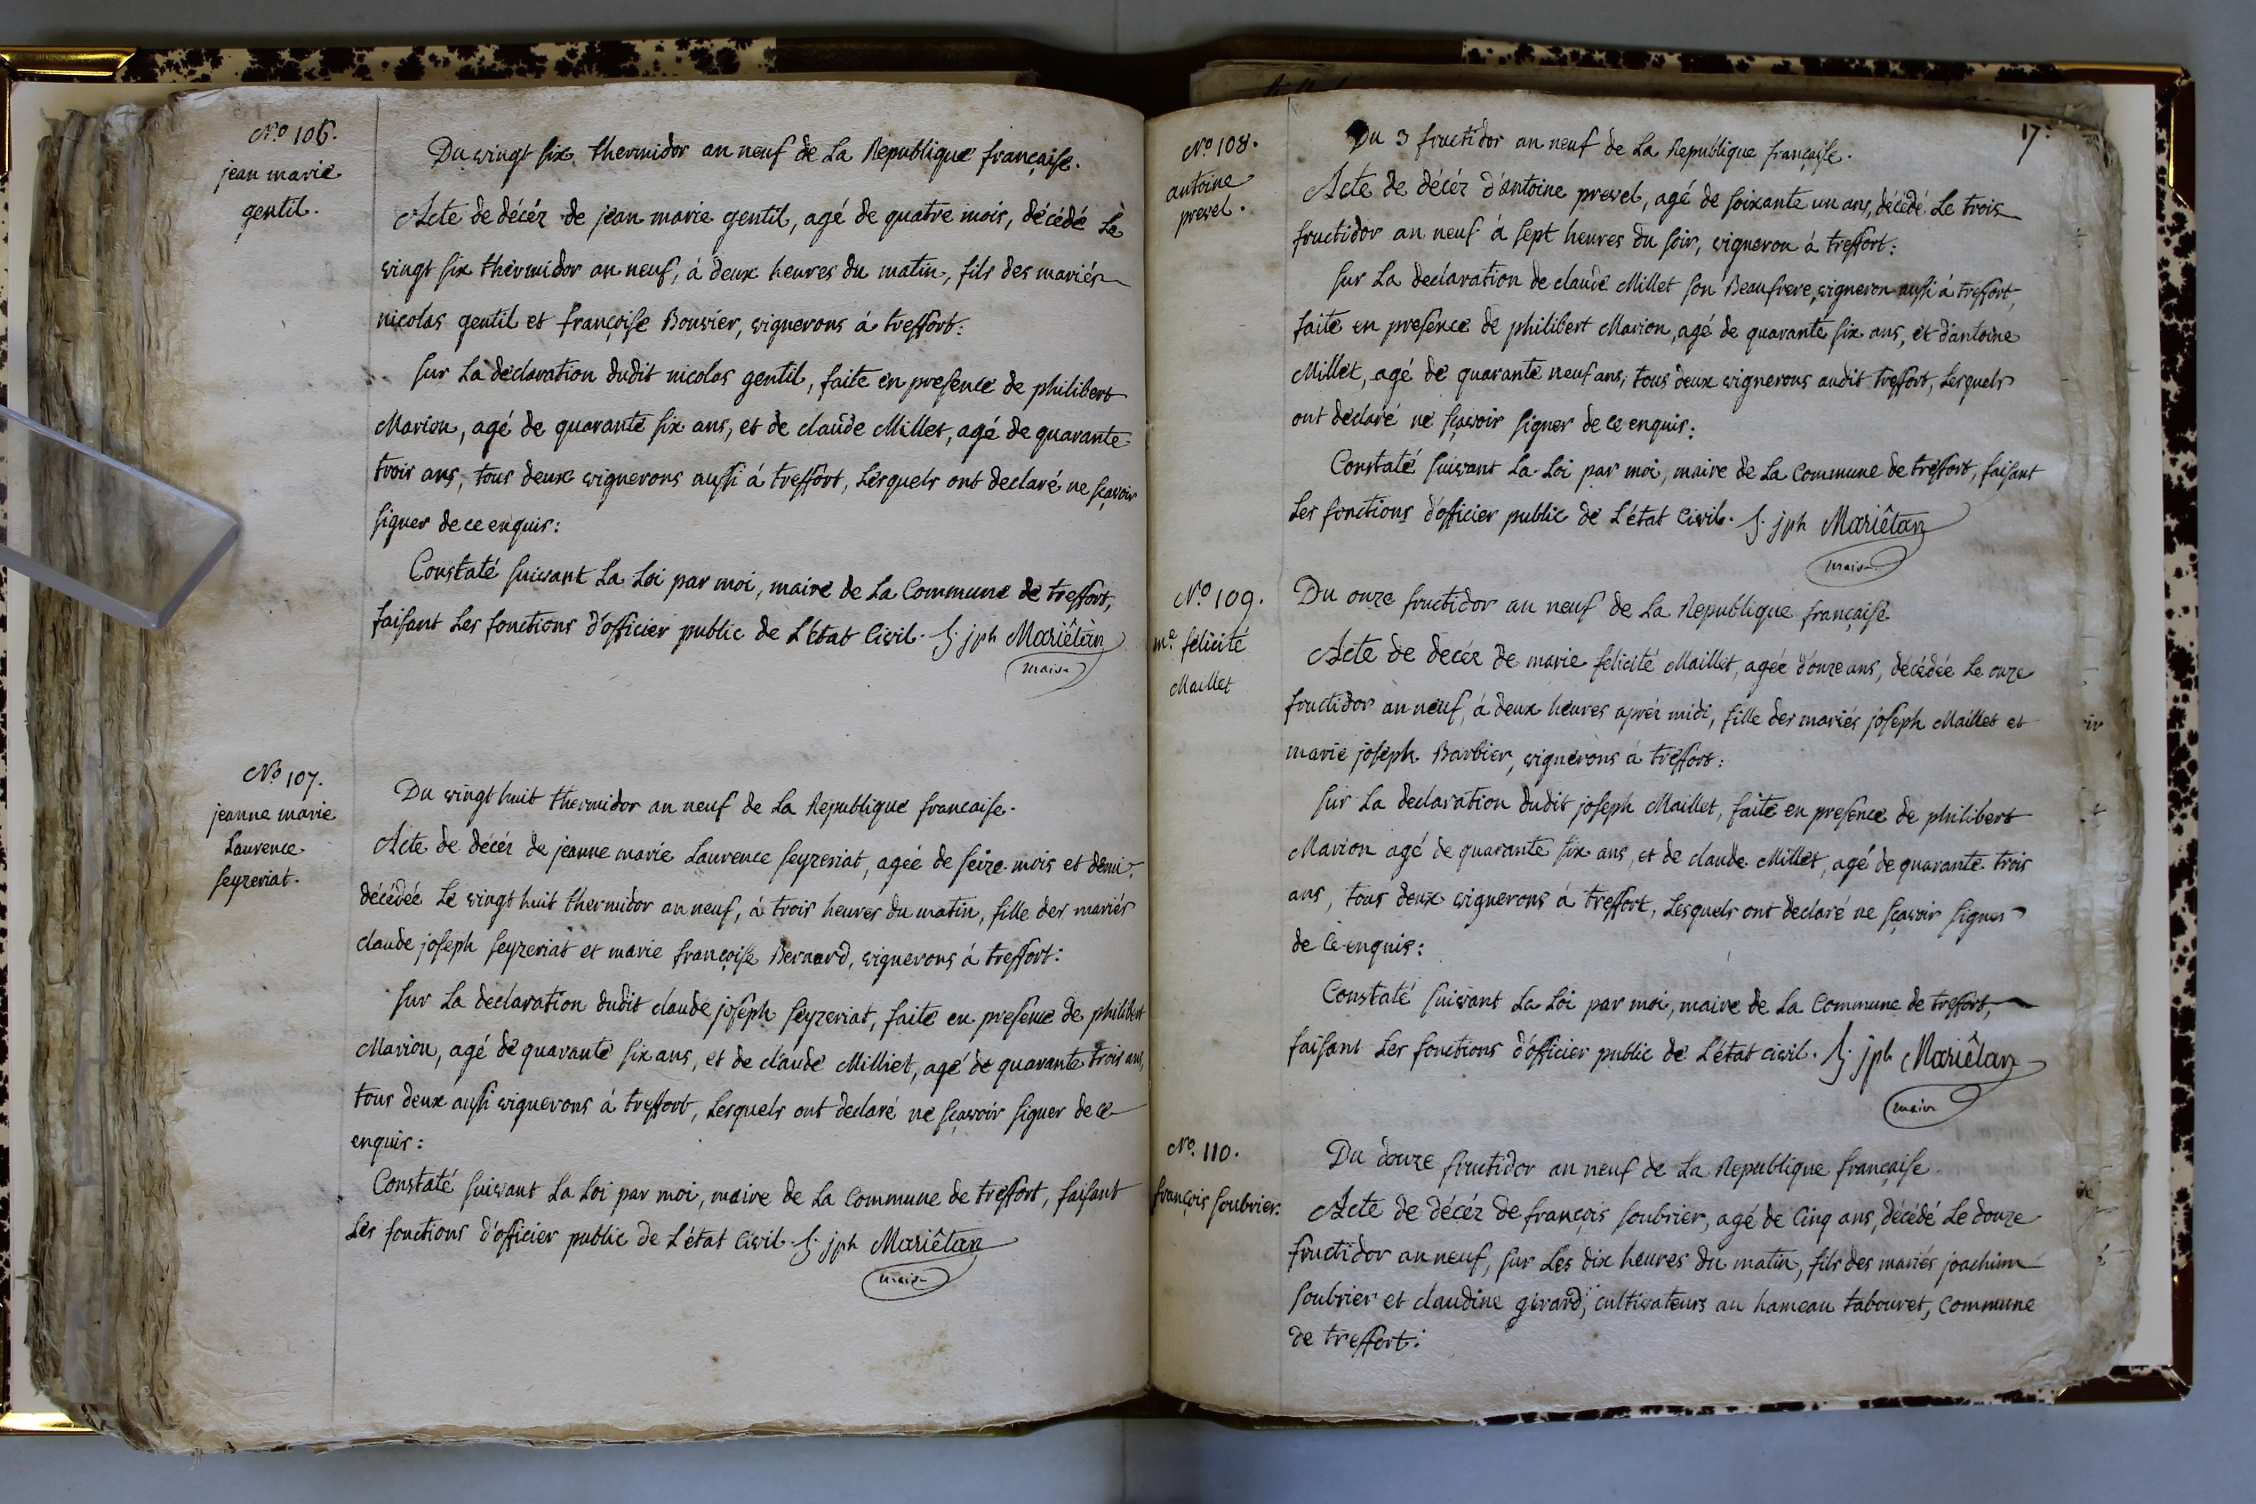 No. 106.
jean marie
gentil.
Du vingt six thermidor an neuf de La Republique française.
Acte de décéz de jean marie gentil, agé de quatre mois, décédé Le
vingt six thérmidor an neuf, à deux heures du matin, fils des mariés
nicolas gentil et françoise Bouvier, vignerons à treffort:
sur La déclaration dudit nicolas gentil, faite en presence de philibert
Marion, agé de quarante six ans, et de claude Millet, agé de quarante
trois ans, tous deux vignerons aussi à treffort, Lesquels ont declaré ne sçavoir
signer de ce enquis:
Constaté suivant La Loi par moi, maire de La Commune de treffort,
faisant Les fonctions d'officier public de L'état Civil. J. jph Mariêtan
maire
No. 107.
jeanne marie
Laurence
seyzeriat.
Du vingt huit thermidor an neuf de La Republique francaise.
Acte de décéz de jeanne marie Laurence seyzeriat, agée de seize mois et demi,
décédée Le vingt huit thermidor an neuf, à trois heures du matin, fille des mariés
claude joseph seyzeriat et marie françoise Bernard, vignerons à treffort:
sur La declaration dudit claude joseph seyzeriat, faite en presence de philibert
Marion, agé de quarante six ans, et de claude Milliet, agé de quarante trois ans,
tous deux aussi vignerons à treffort, Lesquels ont declaré ne sçavoir signer de ce
enquis:
Constaté suivant La Loi par moi, maire de La Commune de treffort, faisant
Les fonctions d'officier public de L'état Civil. J. jph Mariêtan
maire
17.
No. 108.
antoine
prevel.
Du 3 fructidor an neuf de La Republique française.
Acte de décéz d'antoine prevel, agé de soixante un ans, décédé Le trois
fructidor an neuf à sept heures du soir, vigneron à treffort:
sur La declaration de claude Millet son Beaufrere, vigneron aussi à treffort,
faite en presence de philibert Marion, agé de quarante six ans, et d'antoine
Millet, agé de quarante neuf ans, tous deux vignerons audit treffort, Lesquels
ont declaré ne sçavoir signer de ce enquis:
Constaté suivant La Loi par moi, maire de La Commune de treffort, faisant
Les fonctions d'officier public de L'état Civil. J. jph Mariêtan
maire
No. 109.
me. félicité
Maillet
Du onze fructidor an neuf de La Republique française
Acte de decéz de marie félicité Maillet, agée d'onze ans, décédée Le onze
fructidor an neuf, à deux heures aprés midi, fille des mariés joseph Maillet et
marie joseph Barbier, vignerons à treffort:
sur La declaration dudit joseph Maillet, faite en presence de philibert
Marion agé de quarante six ans, et de claude Millet, agé de quarante trois
ans, tous deux vignerons à treffort, Lesquels ont declaré ne sçavoir signer
de Ce enquis:
Constaté suivant La Loi par moi, maire de La Commune de treffort,
faisant Les fonctions d'officier public de L'état civil. J. jph Mariêtan
maire
No. 110.
françois soubrier.
Du douze fructidor an neuf de La Republique française
Acte de décéz de françois soubrier, agé de Cinq ans, décédé Le douze
fructidor an neuf, sur Les dix heures du matin, fils des mariés joachim
soubrier et claudine girard, cultivateurs au hameau tabouret, Commune
de treffort: